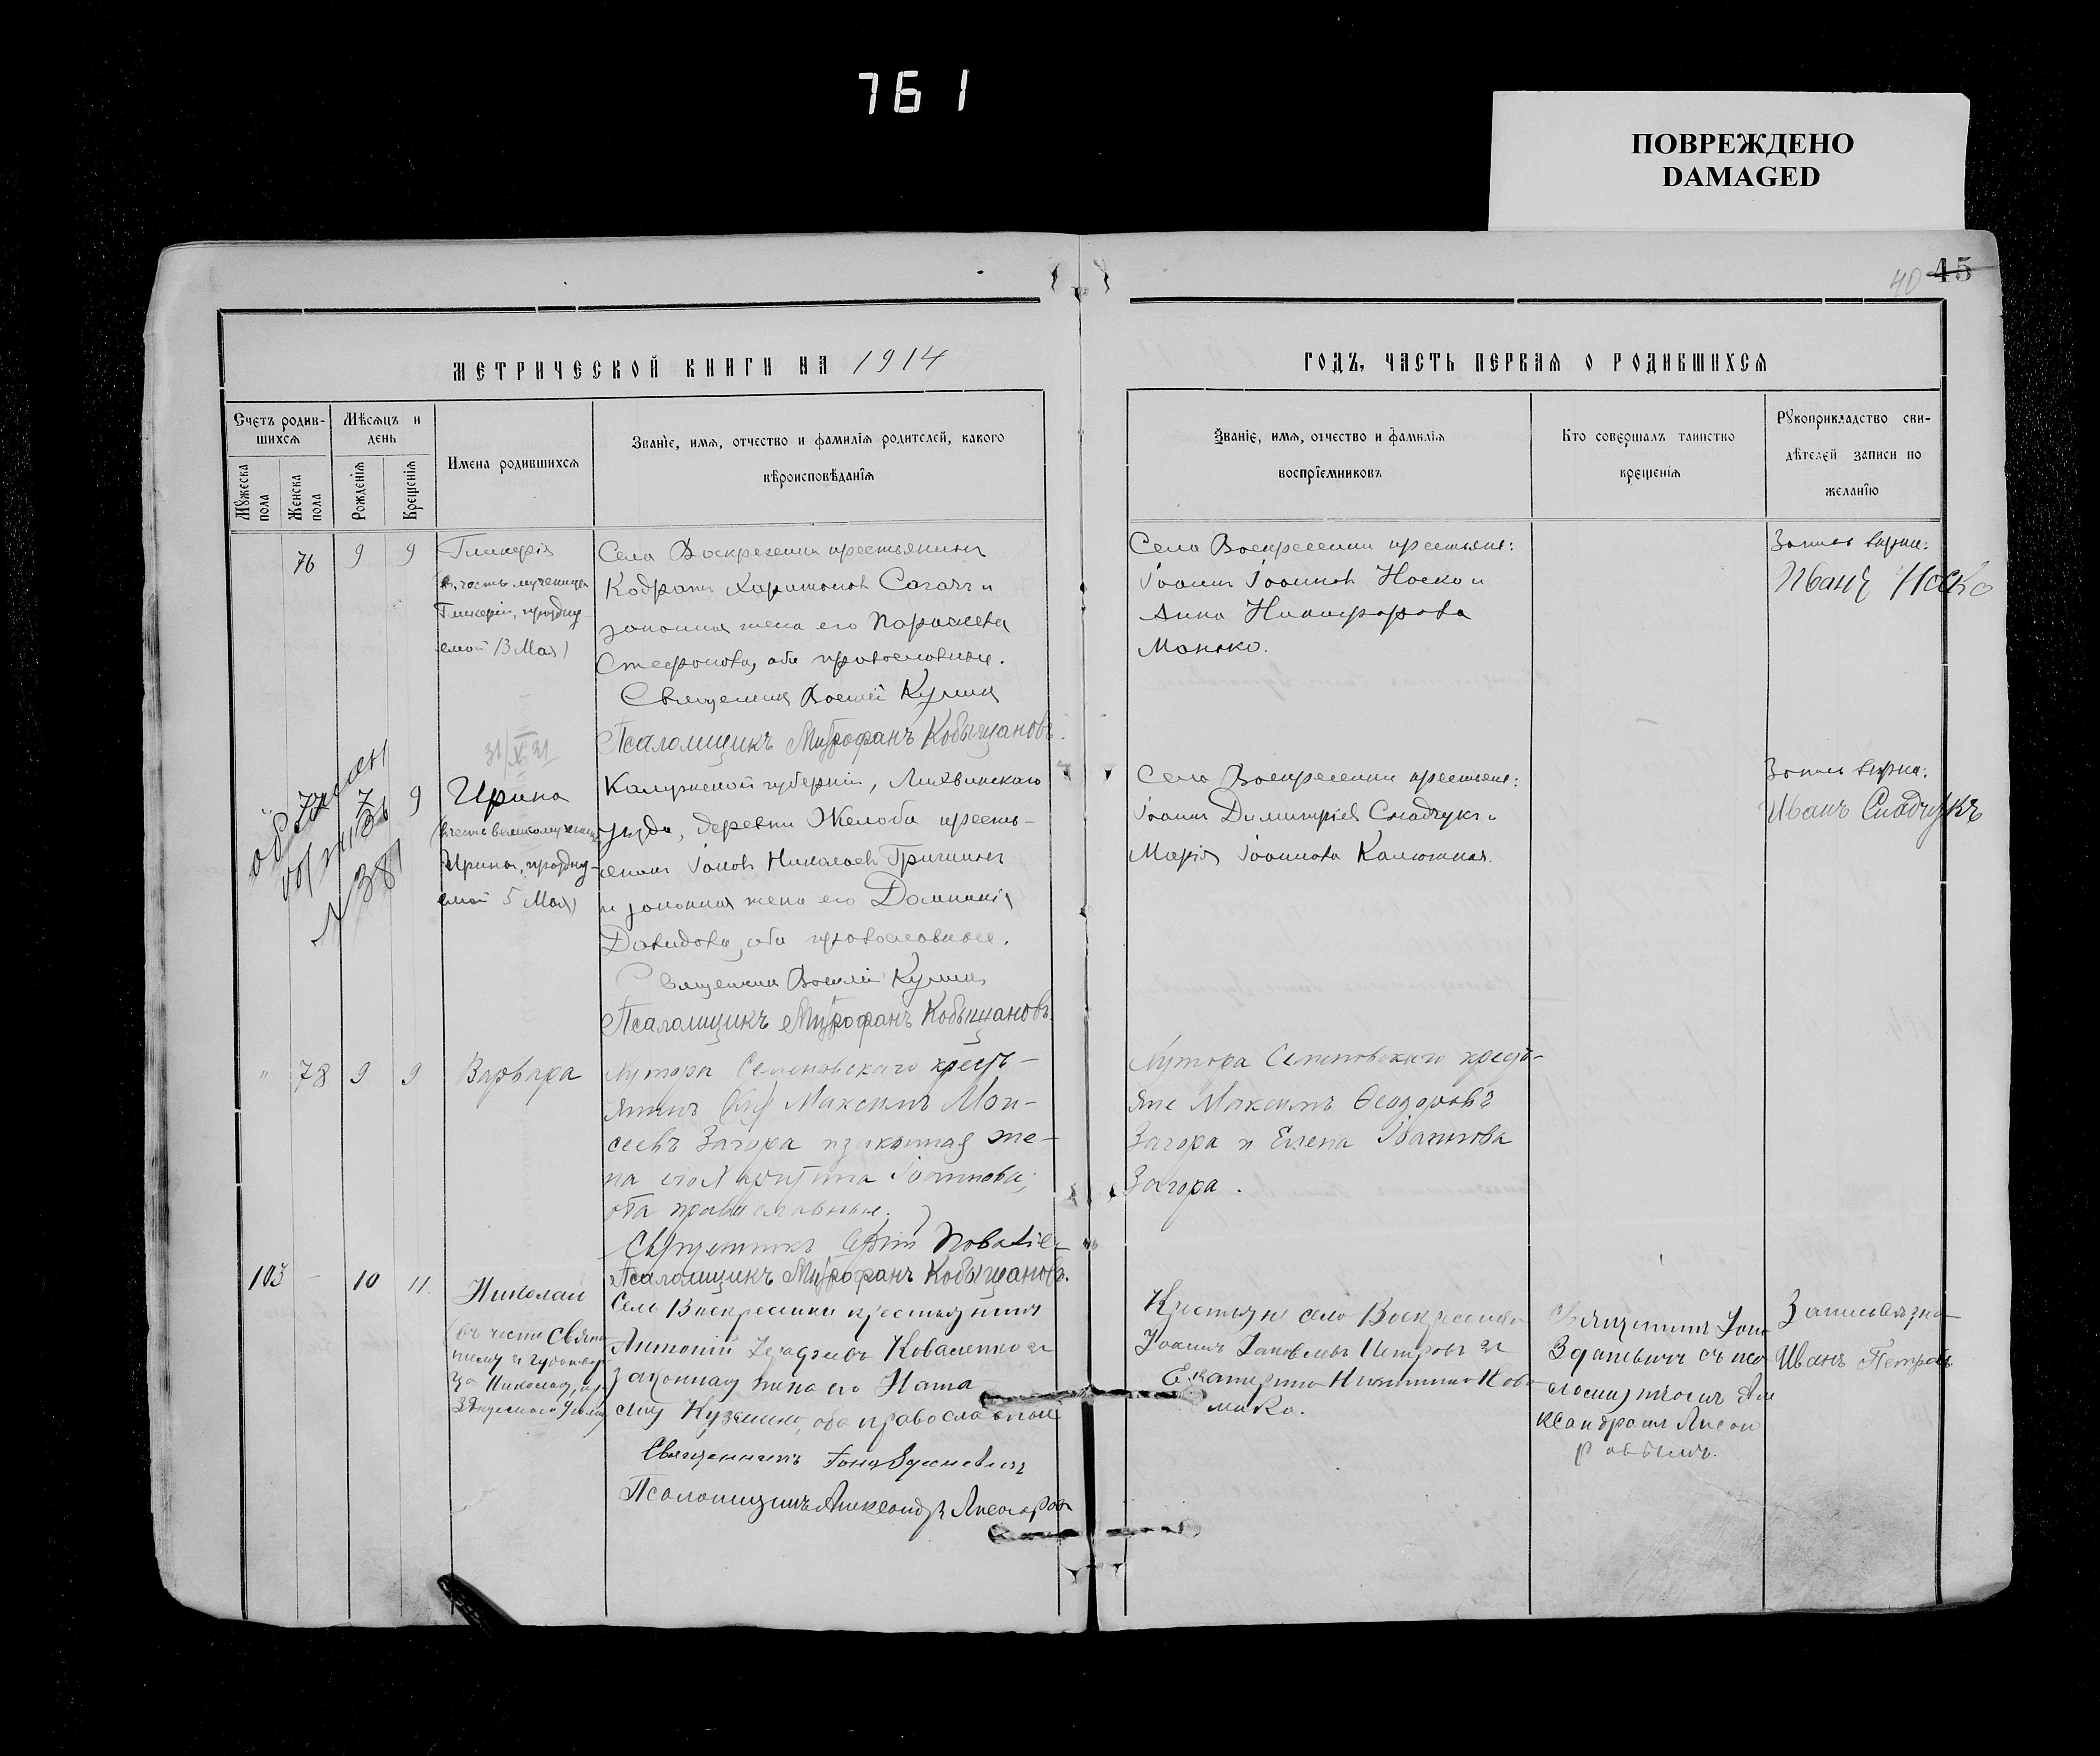 761
ПОВРЕЖДЕНО
DAMAGED
40 45
МЕТРИЧЕСКОЙ КНИГИ НА 1914
ГОДЪ, ЧАСТЬ ПЕРВАЯ О РОДИВШИХСЯ
Счетъ родив-
шихся
Мужеска пола
Женска пола
Мѣсяцъ и
день
Рожденія
Крещенія
Имена родившихся
Званіе, имя, отчество и фамилія родителей, какого
вѣроисповѣданія
Званіе, имя, отчество и фамилія
воспріемниковъ
Кто совершалъ таинство
крещенія
Рукоприкладство сви-
дѣтелей записи по
желанію
76 9 9
Гликерія
въ честь мученицы
Гликеріи, праздну
емой 13 Мая)
Села Воскресенки крестьянинъ
Кодратъ Харитоновъ Сагачъ и
законная жена его Параскева
Стефанова, оба православные.
Священникъ Василій
Псаломщикъ Митрофанъ Кобыщановъ.
Села Воскресенки крестьяне:
Іоаннъ Іоанновъ Носко и
Анна Никифорова
Манько.
Запись вѣрна:
Иванъ Носко
31/X 31
77 7 9
№ 381
Ирина
(въ честь великомученицы
Ирины, праздну-
емой 5 Мая)
Калужской губерніи, Лихвинскаго
уѣзда, деревни Желоби кресть-
янинъ Іаковъ Николаевъ Гришинъ
и законная жена его Домникія
Давидова, оба православные.
Священникъ Василій
Псаломщикъ Митрофанъ Кобыщановъ.
Села Воскресенки крестьяне:
Іоаннъ Димитріевъ Сладчукъ и
Марія Іоаннова Калюжная.
Запись вѣрна:
Иванъ Сладчукъ
" 78 9 9
Варвара
Хутора Семеновскаго кресть-
янинъ Максимъ Мои-
сеевъ Загора и законная же-
на его Іоаннова,
оба православные.
Священникъ
Псаломщикъ Митрофанъ Кобыщановъ.
Хутора Семеновскаго кресть-
яне Максимъ Ѳеодоровъ
Загора и Елена Іоаннова
Загора.
103 - 10 11.
Николай
(въ честь Святи
телю и чудотвор
ца Николая,
Села Воскресенки крестьянинъ
Антоній Коваленко и
законная жена его Ната
лія Кузьмина, оба православные
Священникъ Іона Зданевичъ
Псаломщикъ Александръ
Крестьяне села Воскресенки
Іоаннъ Іаковлевъ Петровъ и
Екатерина Никитина
Священникъ Іона
Зданевичъ съ пса
ломщикомъ Але
ксандромъ
Запись вѣрна
Иванъ Петровъ